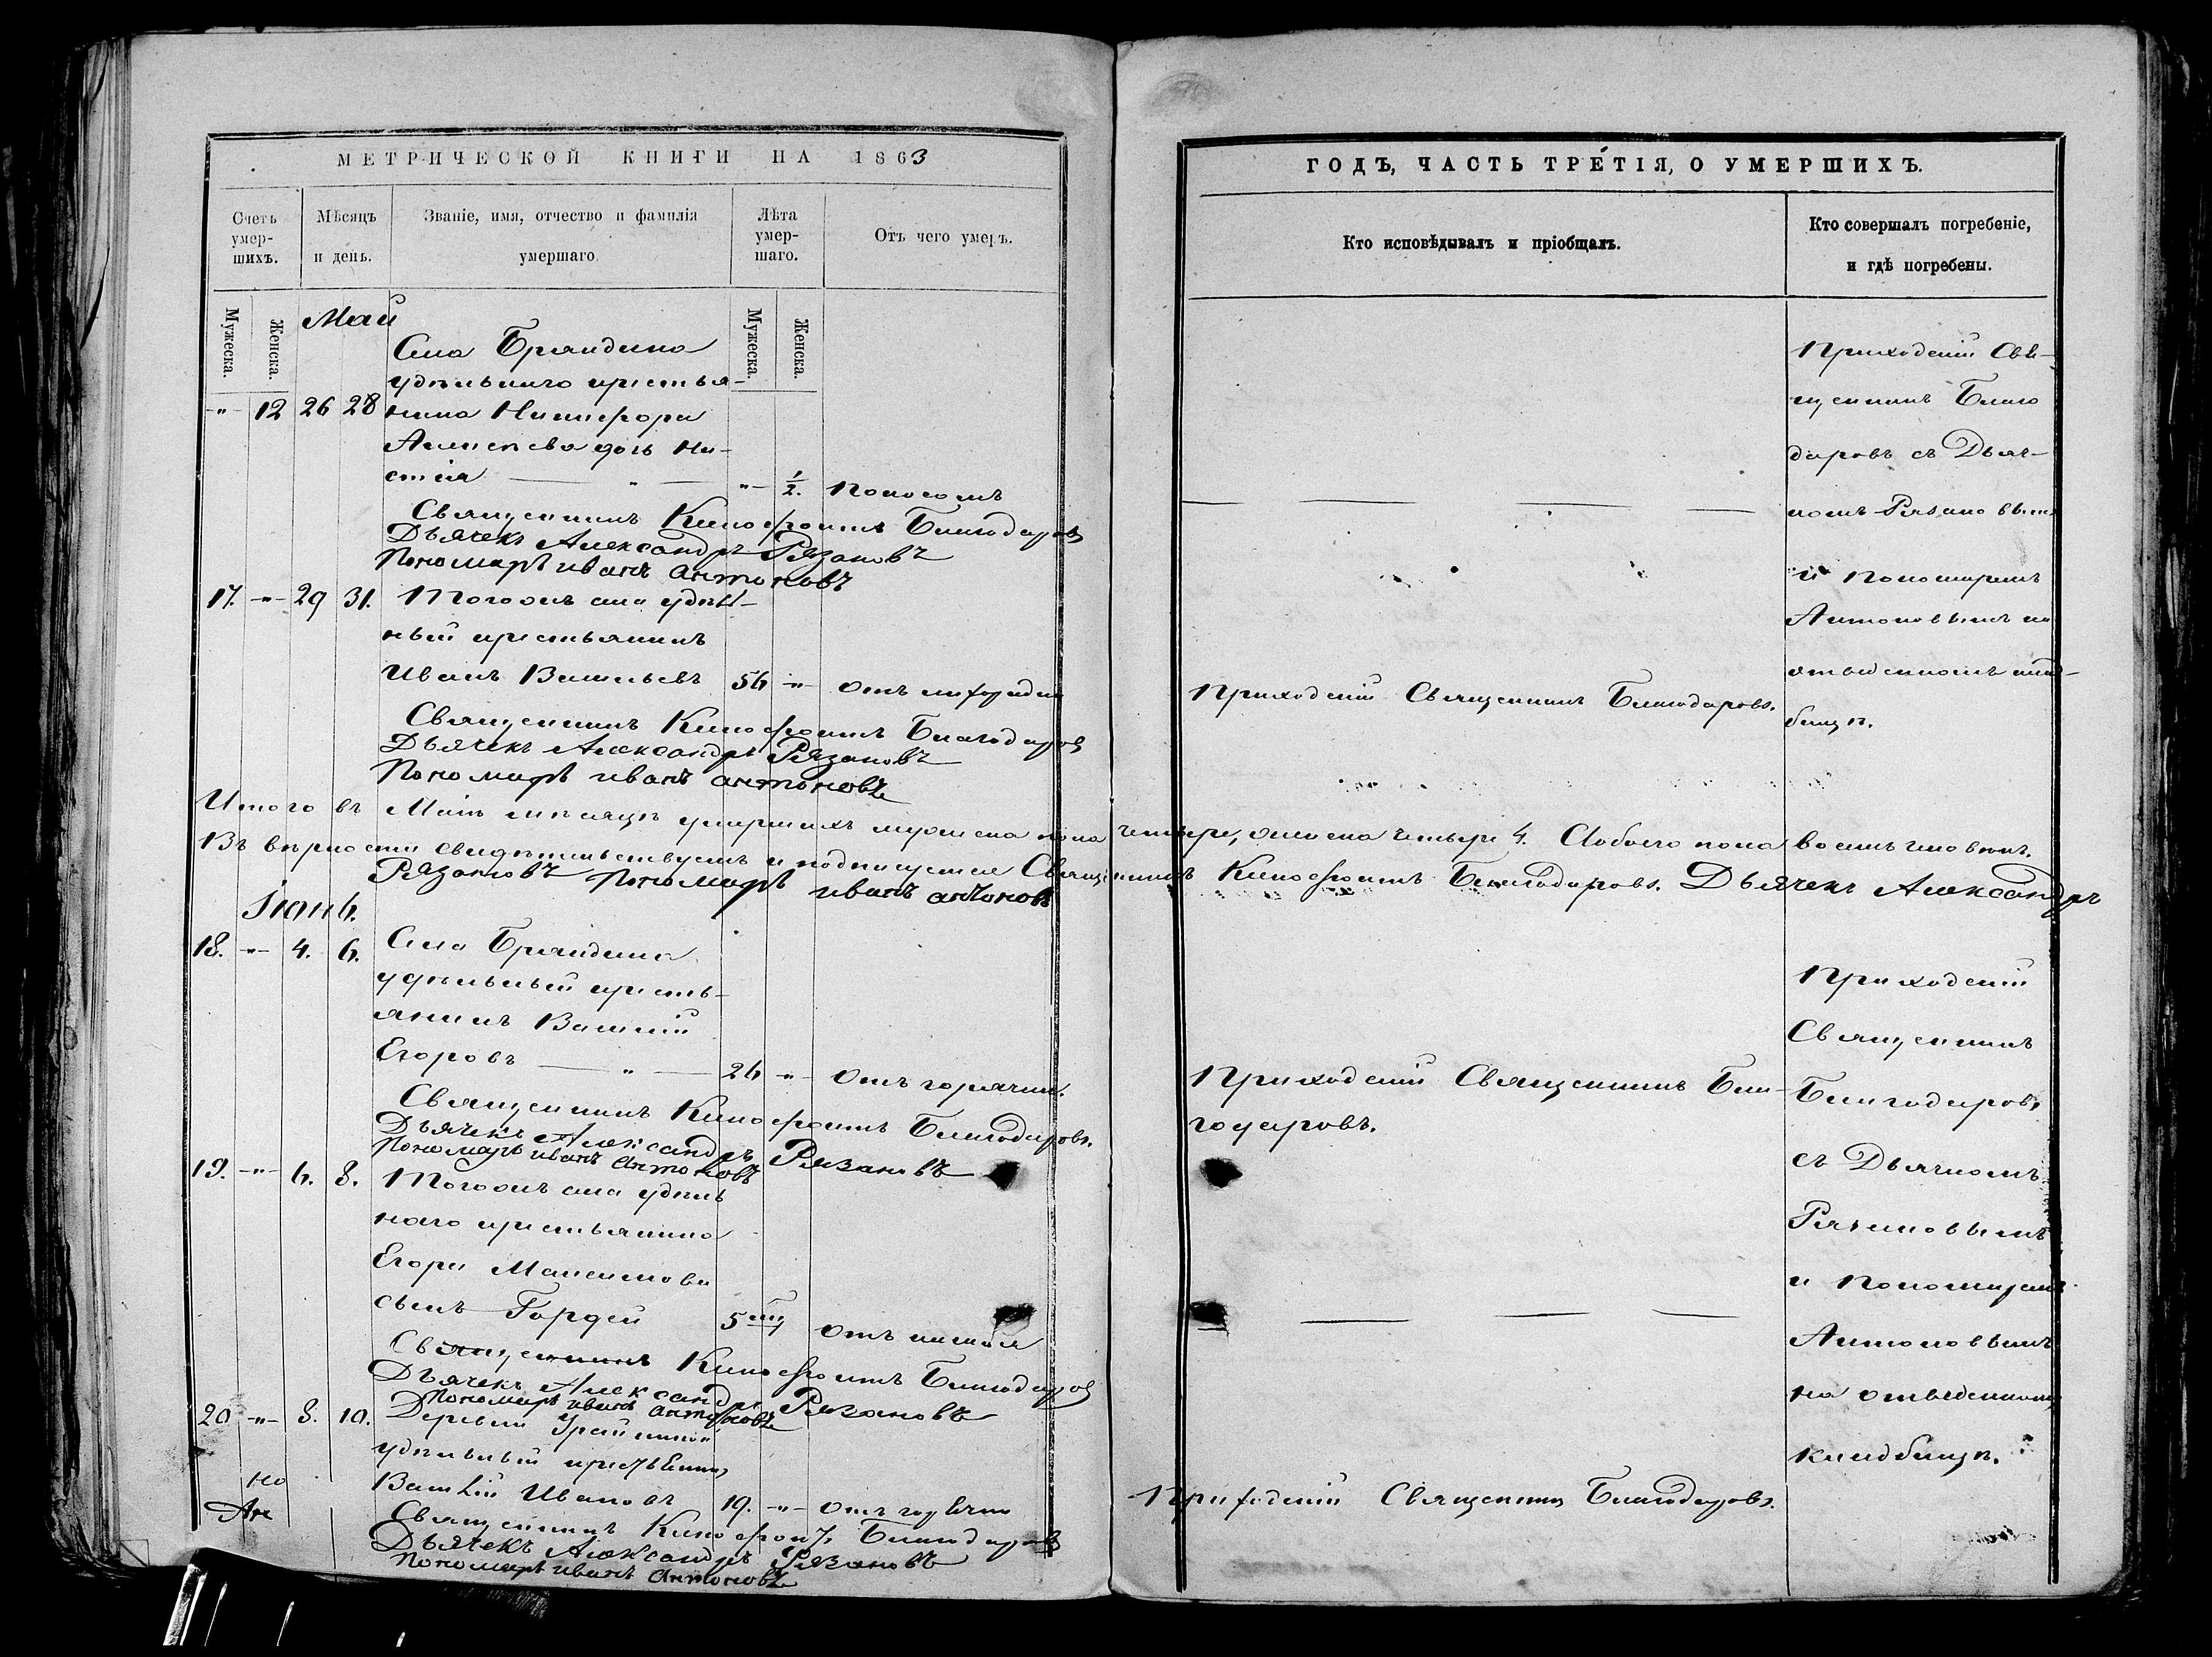 МЕТРИЧЕСКОЙ КНИГИ НА 1863
Счетъ умер-шихъ.
Мѣсяцъ и день.
Званіе, имя, отчество и фамилія умершаго
Лѣта умер-шаго.
Отъ чего умеръ.
Мужеска.
Женска.
Мужеска.
Женска.
Май
Села Бряндина
удѣльнаго крестья-
-"- 12 26 28 нина Никифора
Алексѣева дочь На-
стсія — " — -"- 1/2. Поносомъ
Священникъ Ксенофонтъ Благодаровъ
Дьячекъ Александръ Рязановъ
Пономарь иванъ антоновъ
17. -"- 29 31. Тогожъ села удѣль-
ный крестьянинъ
Иванъ Васильевъ 56 -"- отъ лихорадки
Священникъ Ксенофонтъ Благодаровъ
Дьячекъ Александръ Рязановъ
Пономарь иванъ антоновъ
Итого въ Маѣ мѣсяцѣ умершихъ мужеска пола четыре, женска четыре 4. Aобоего пола восемь человѣкъ.
Въ вѣрности свидѣтельствуемъ и подписуемся Священникъ Ксенофонтъ Благодаровъ. Дьячекъ Александръ
Рязановъ Пономарь иванъ антоновъ
Іюнь.
18. -"- 4. 6. Села Бряндина
удѣльный кресть-
янинъ Василій
Егоровъ — " — 26 -"- отъ горячки.
Священникъ Ксенофонтъ Благодаровъ.
Дьячекъ Александръ Рязановъ
Пономарь иванъ антоновъ
19. -"- 6. 8. Тогожъ села удѣль
наго крестьянина
Егора Максимова
сынъ Гордей 5 отъ кашля
Священникъ Ксенофонтъ Благодаровъ
Дьячекъ Александръ Рязановъ
Пономарь иванъ антоновъ
20 -"- 8. 10. Деревни
удѣльный крестьянинъ
Василій Ивановъ 19. -"- отъ горячки
Священникъ Ксенофонтъ Благодаровъ
Дьячекъ Александръ Рязановъ
Пономарь иванъ антоновъ
ГОДЪ, ЧАСТЬ ТРЕТІЯ, О УМЕРШИХЪ.
Кто исповѣдывалъ и пріобщалъ.
Кто совершалъ погребеніе,
и гдѣ погребены.
Приходскій Свя-
щенникъ Благо
даровъ съ Дьяч-
комъ Рязановымъ
и Пономаремъ
Антоновымъ на
отведенномъ клад-
бищѣ.
Приходскій Священникъ Благодаровъ.
Приходскій Священникъ Бла-
годаровъ.
Приходскій
Священникъ
Благодаровъ
съ Дьячкомъ
Рязановымъ
и Пономаремъ
Антоновымъ
на отведенномъ
кладбищѣ.
Приходскій Священникъ Благодаровъ.